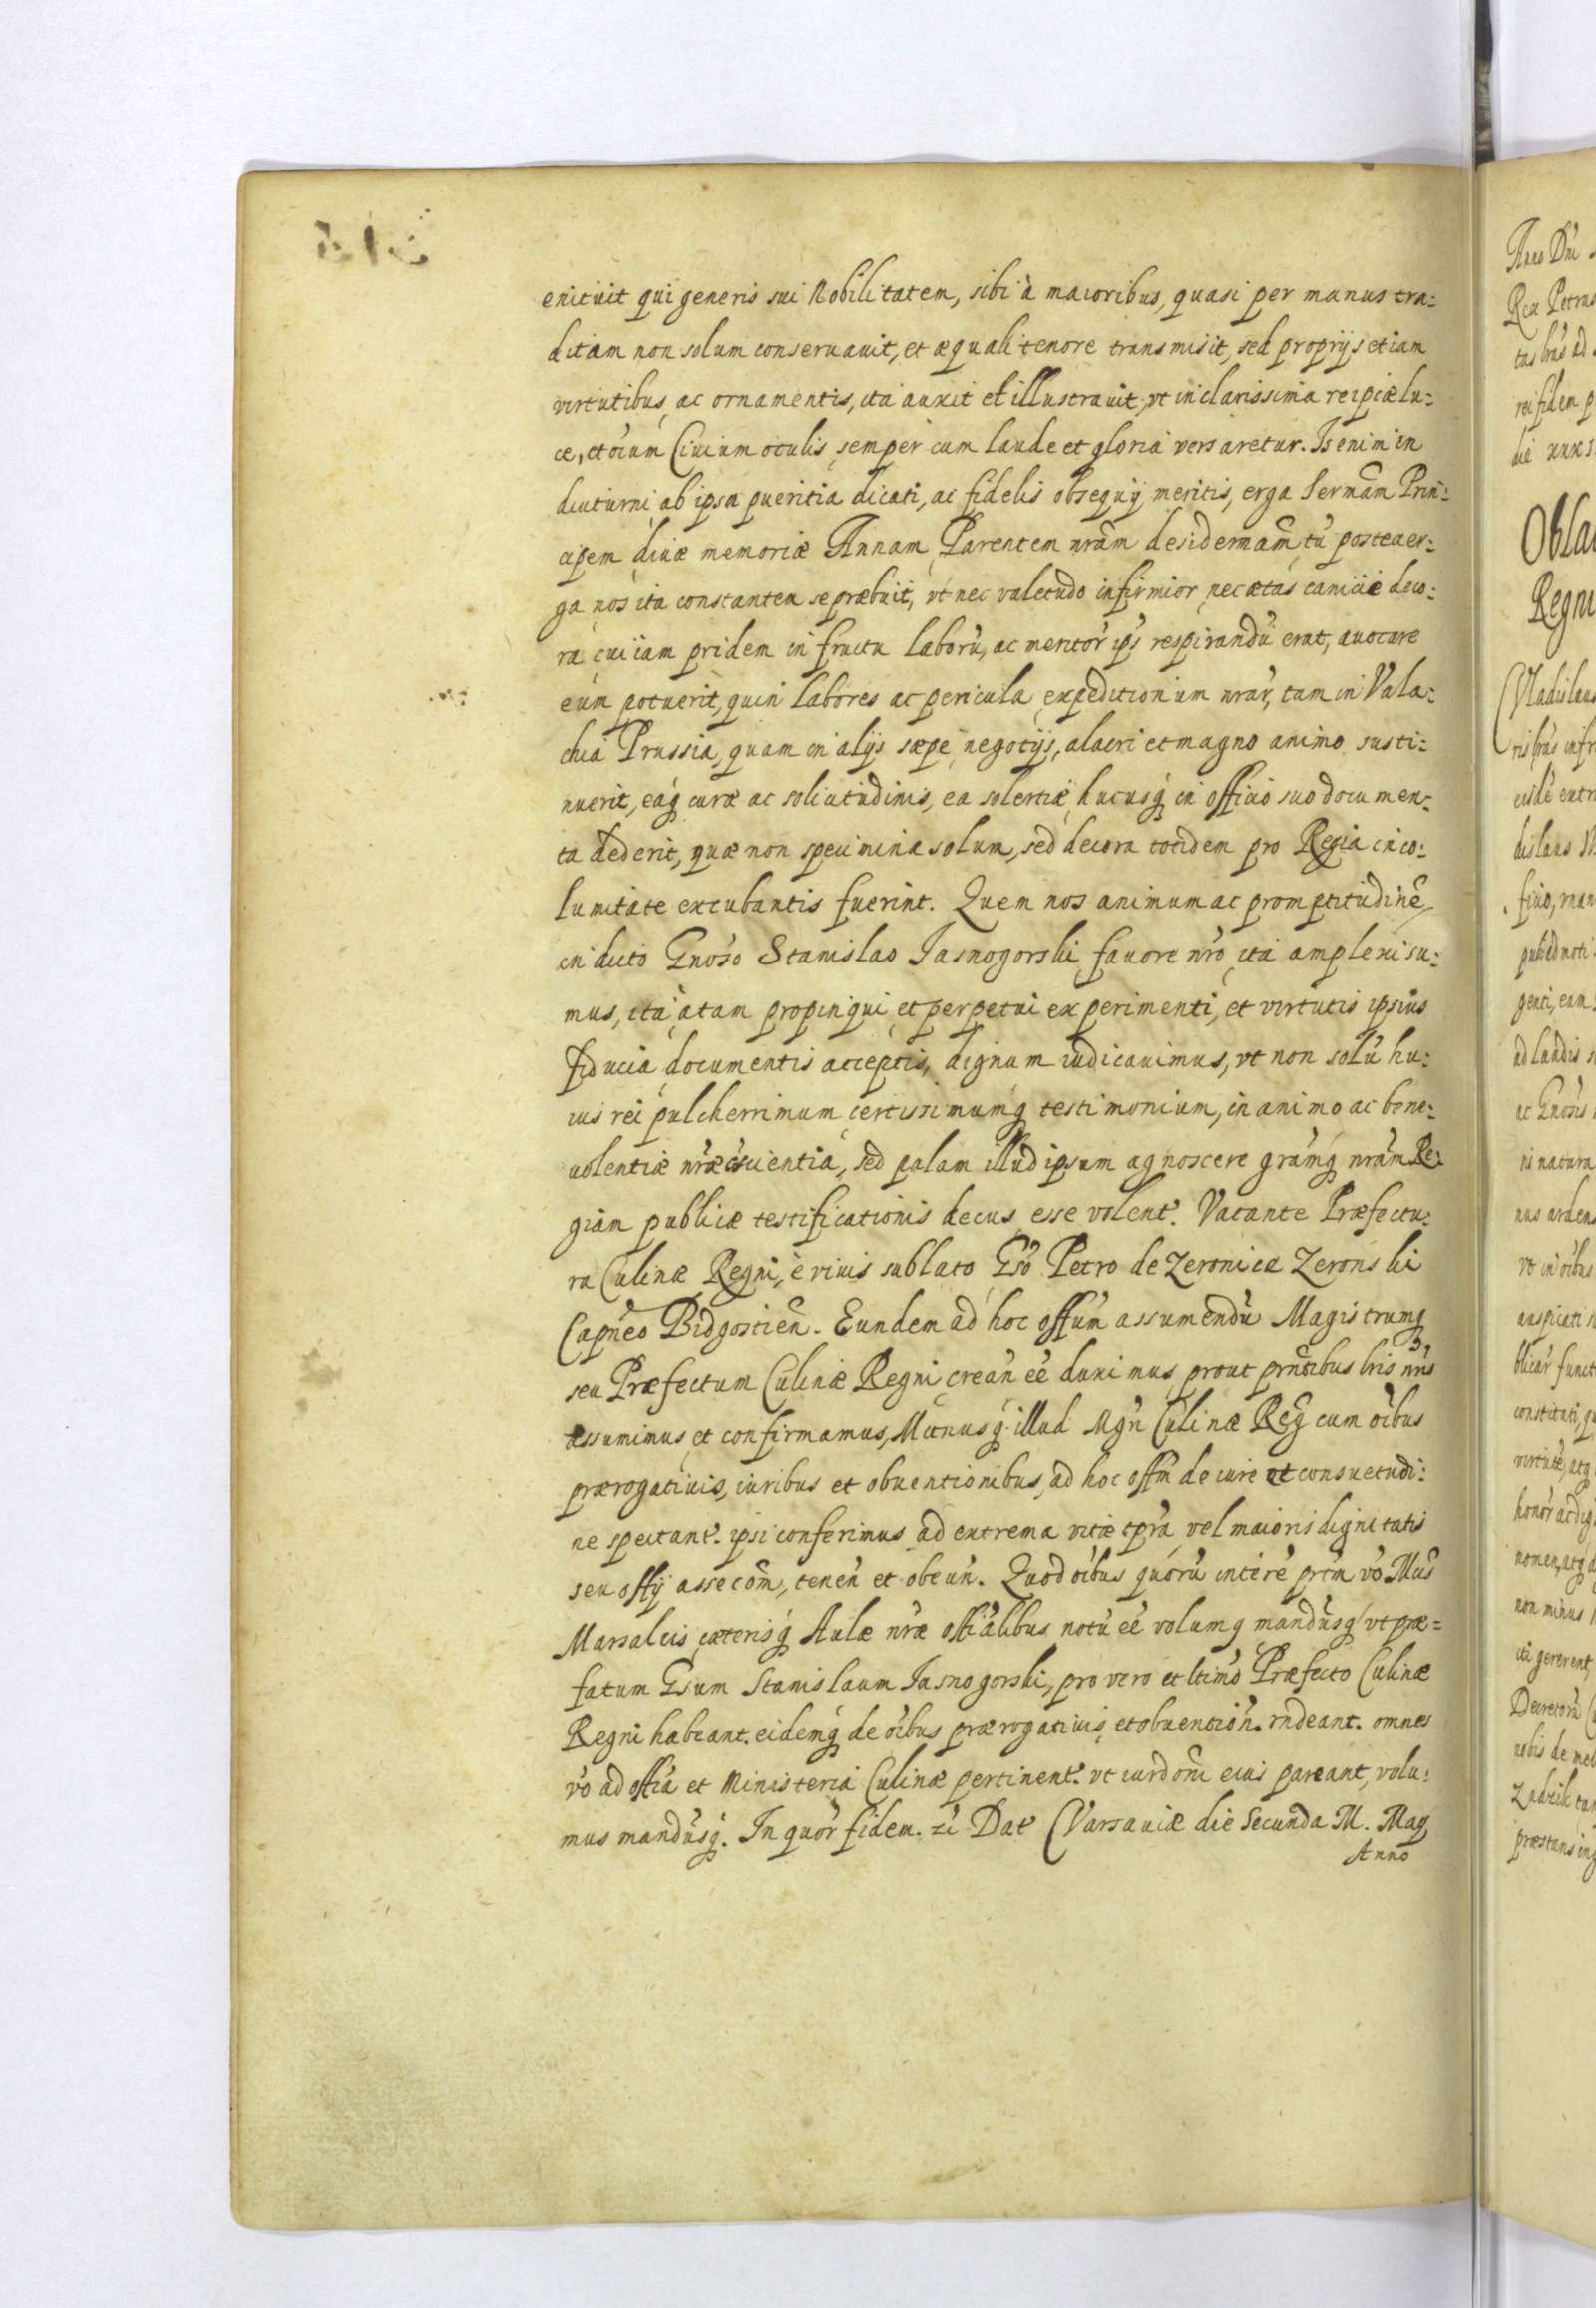 enituit qui generis sui Nobilitatem, sibi à maioribus, quasi per manus tra:
ditam non solum conseruauit, et æquali tenore transmisit, sed proprijs etiam
virtutibus, ac ornamentis, ita auxit et illustrauit, vt in clarissima reipcæ lu:
ce, et oium Ciuium oculis, semper cum laude et gloria versaretur. Is enim in
diuturni ab ipsa pueritia dicati, ac fidelis obsequij meritis, erga Sermam Prin:
cipem diuæ memoriæ Annam Parentem nram desidermam tu postea er:
ga nos ita constantem se præbuit, vt nec valetudo infirmior, nec ætas canicie deco:
ra cui iam pridem in fructu laboru, ac meritor ips respirandu erat, auocare
eum potuerit, quin labores ac pericula expeditionum nrar, tam in Vala:
chia Prussia, quam in alijs sæpe negotijs, alacri et magno animo susti:
nuerit, eaq curæ ac solicitudinis, ea solertiæ hucusq in officio suo documen:
ta dederit, quæ non specimina solum, sed decora totidem pro Regia inco:
lumitate excubantis fuerint. Quem nos animum ac promptitudine
in dicto Gnoso Stanislao Jasnogorski fauore nro ita amplexi su:
mus, ita a tam propinqui et perpetui experimenti, et virtutis ipsius
fiducia documentis acceptis, dignum iudicauimus, vt non solu hu:
ius rei pulcherrimum certissimumq testimonium, in animo ac bene:
uolentiæ nræ cscientia, sed palam illud ipsum agnoscere gramq nram Re:
giam publicæ testificationis decus esse volent. Vacante Præfectu:
ra Culinæ Regni, è viuis sublato Gso Petro de Zeronice Zeronski
Capneo Bidgostien. Eundem ad hoc offum assumendu Magistrumq
seu Præfectum Culinæ Regni crean ee duximus, prout prntibus lris nris
assumimus et confirmamus, Munusq illud Mgri Culinæ Reg cum oibus
prærogatiuis, iuribus et obuentionibus, ad hoc offm de iure et consuetudi:
ne spectant. ipsi conferimus ad extrema vitæ tpra, vel maioris dignitatis
seu offij assecom, tenen et obeun. Quod oibus quoru intere prtm vo Mcis
Marsalcis cæterisq Aulæ nræ offialibus notu ee volumq mandusq vt præ=
fatum Gsum Stanislaum Jasnogorski, pro vero et ltimo Præfecto Culinæ
Regni habeant. eidemq de oibus prærogatiuis et obuention. rndeant. omnes
vo ad offia et Ministeria Culinæ pertinent. vt iurdoni eius pareant, volu:
mus mandusq. In quor fidem. zc Dat Varsauiæ die Secunda M. Maij
Anno
Anno Dni
Rex Petrus
tas lras ad
rei fidem p
die xxx
Obla
Regni
Vladislaus
ris lras infr
dislaus
ficio, man
genti, eam
ad laudis
ac Gnosis
ni natura
nus ardens
vt in oibus
auspicati
blicar funct
constituti, qu
virtute, atq
honor ac dig
nomen, atq
non minus
iti gererent
Decretoru
nobis de me
Zadzik
præstans ing